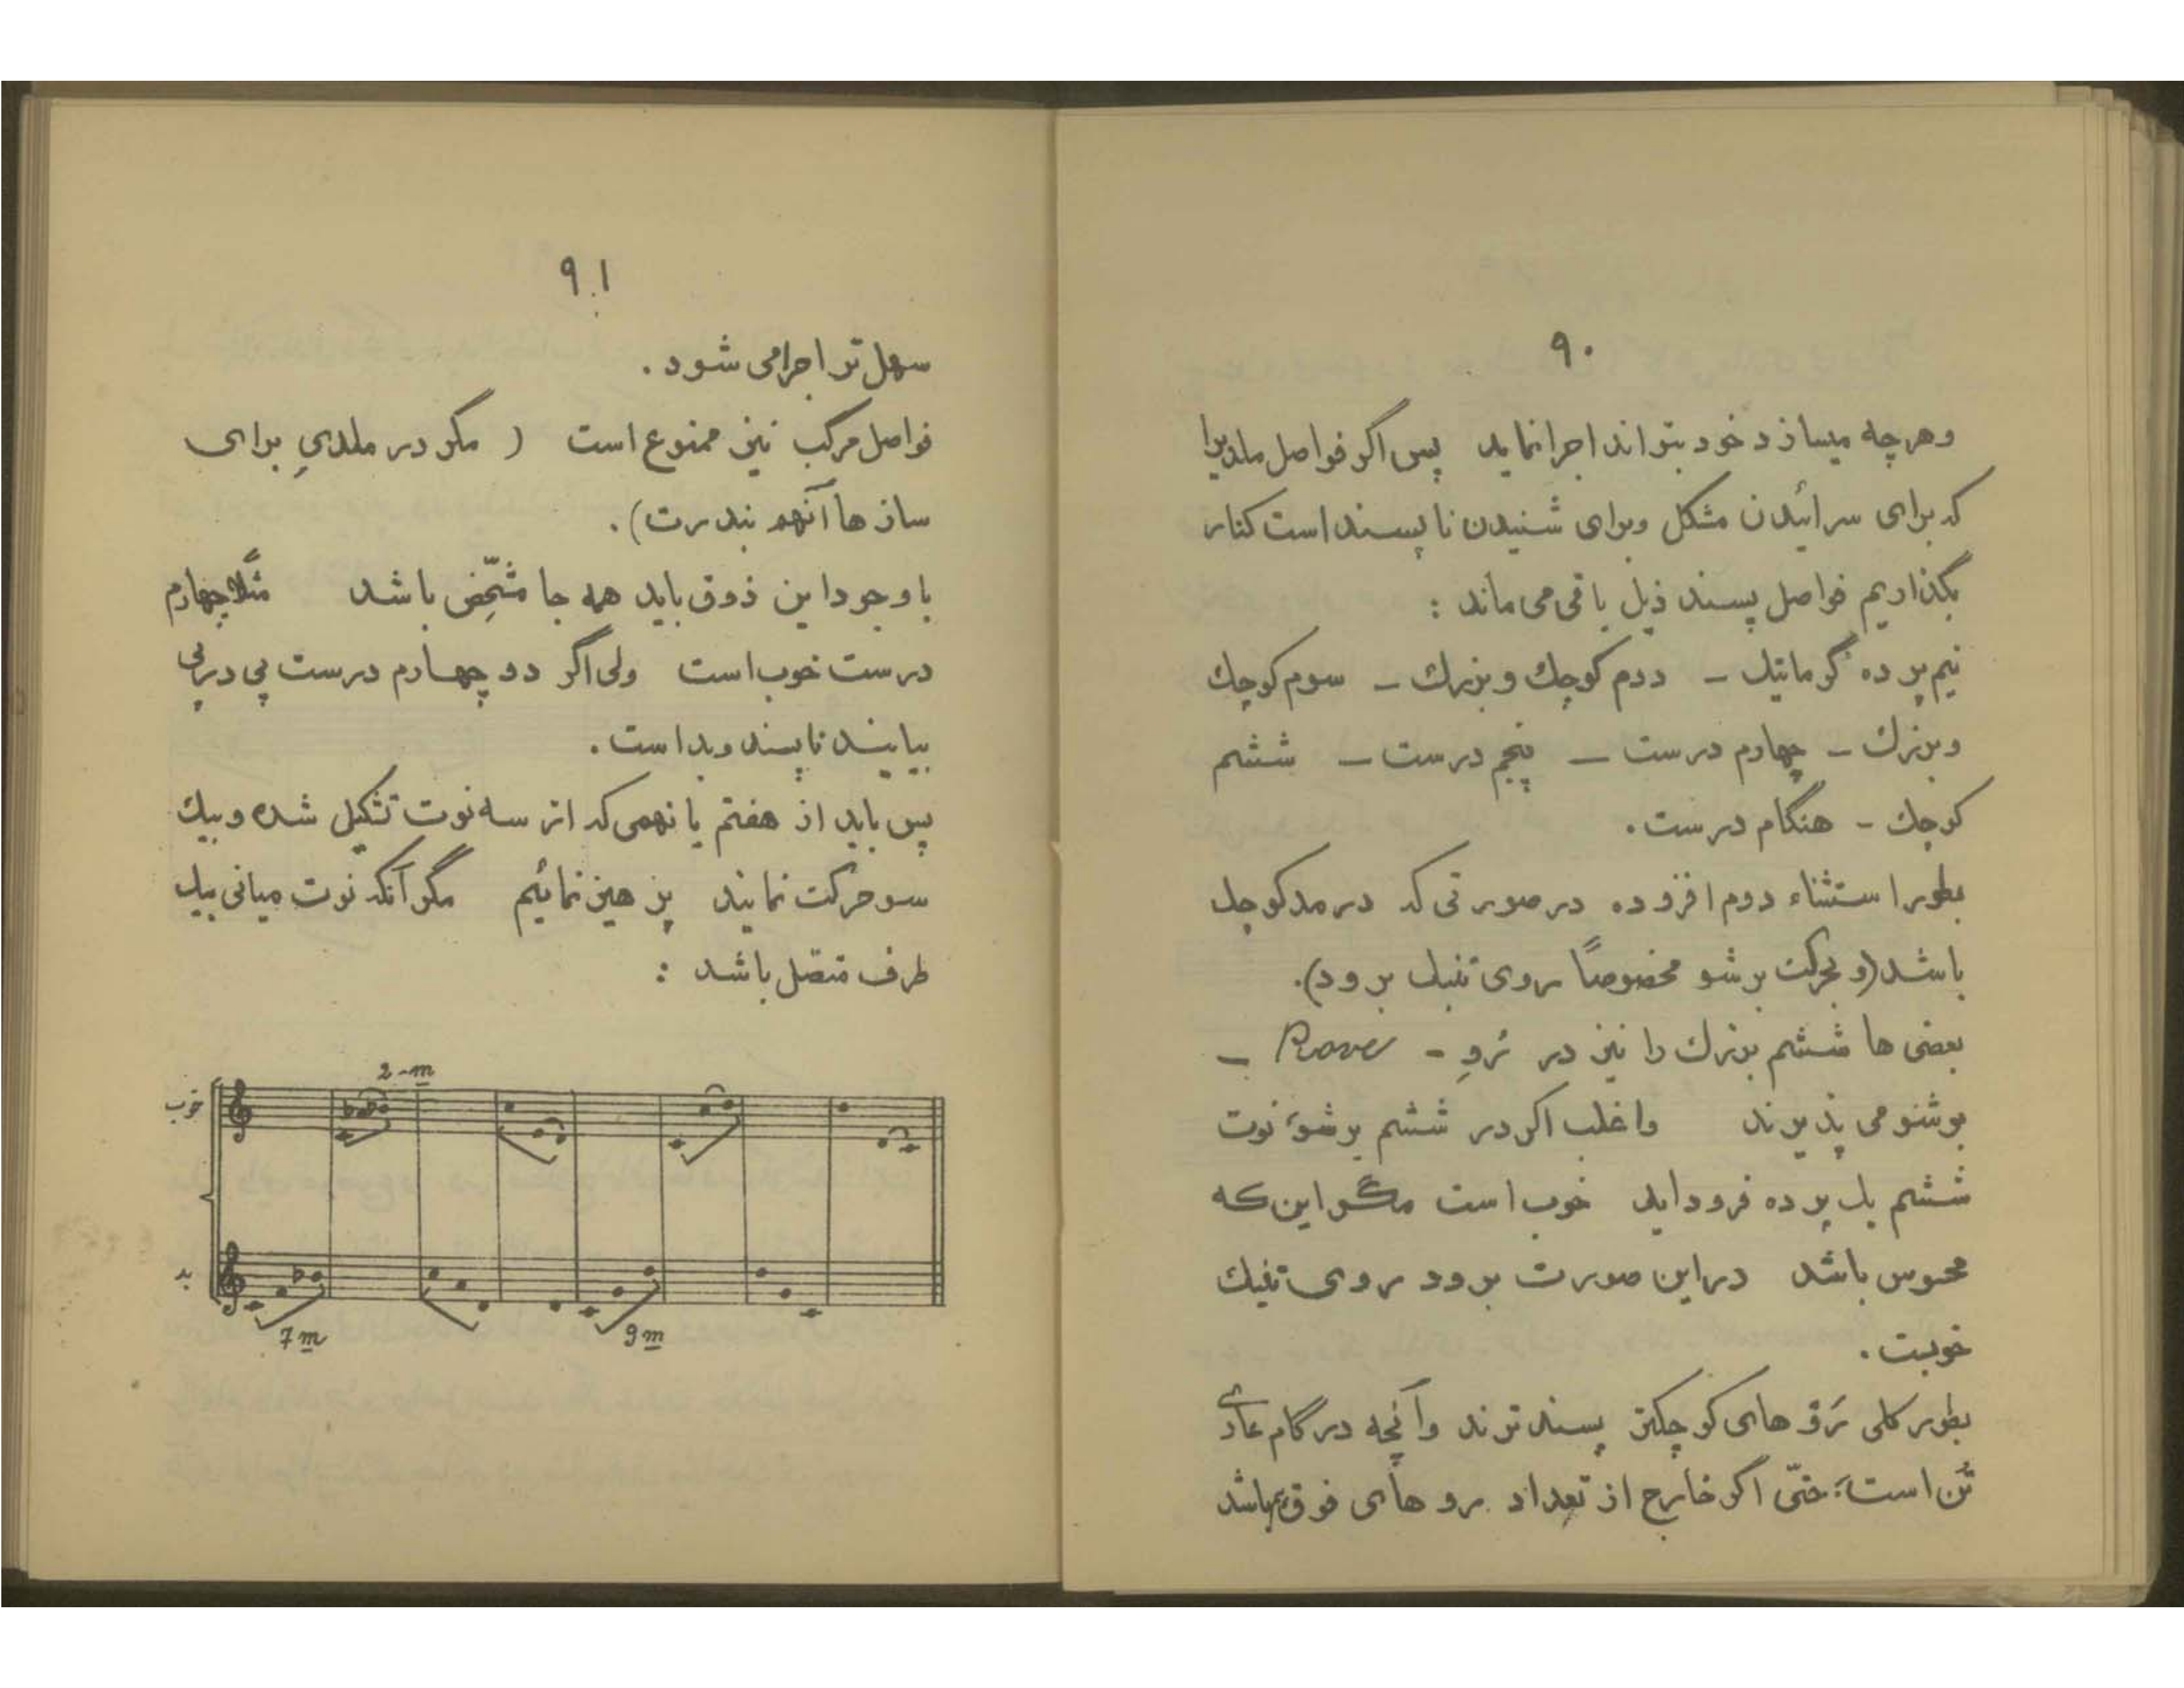 ۹۰
وهرچه میسازد خود بتواند اجرا نماید پس اگر فواصل ملدیرا
که برای سرائیدن مشکل وبرای شنیدن ناپسند است کنار
بگذاریم فواصل پسند ذیل باقی می ماند :
نیم پرده کرماتیک – دوم کوچک وبزرک – سوم کوچک
وبزرک – چهارم درست – پنجم درست – ششم
کوچک – هنگام درست.
بطور استثناء دوم افزوده در صورتی که در مد کوچک
باشد (و بحرکت برشو مخصوصاً روی تنیک برود).
بعضی ها ششم بزرک را نیز در رُوِ –
برشو می پذیرند واغلب اگر در ششم برشو، نوت
ششم یک پرده فرود اید خوب است مگر این که
محسوس باشد دراین صورت برود روی تنیک
خوبست.
بطور کلی رُو های کوچکتر پسند ترند وآنچه در گام عادی
تُن است، حتّی اگر خارج از تعداد رو های فوق باشد
۹۱
سهل تر اجرا می شود.
فواصل مرکب نیز ممنوع است ( مگر در ملدیِ برای
ساز ها آنهم بندرت).
با وجود این ذوق باید همه جا مشخّص باشد مثلاً چهارم
درست خوب است ولی اگر دو چهارم درست پی درپی
بیایند ناپسند وبد است.
پس باید از هفتم یا نهمی که از سه نوت تشکیل شده وبیک
سو حرکت نمایند پرهیز نمائیم مگر آنکه نوت میانی بیک
طرف متصل باشد :
2-m
خوب
بد
7m 9m